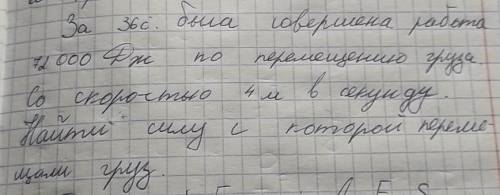 За 36с. была совершена работа
72000 Дж по перемещению груза
Со скоростью 4 м в секунду.
Найти силу с которой переме-
щали груз.